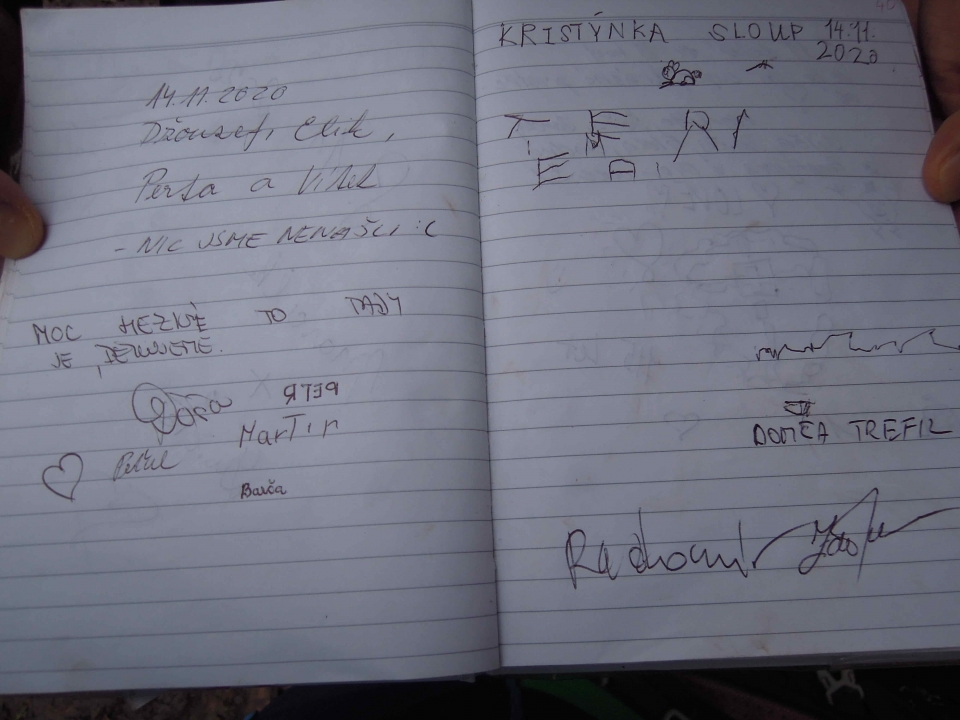 14.11.2020
Džouzef, Elik,
Perla a Vítek
- NIC JSME NENAŠLI :C
MOC HEZKÉ TO TADY
JE, DĚKUJEME.
Dáša PETR
Martin
Barča
40
KRISTÝNKA SLOUP 14.11.
2020
T E R I
EMA
DOMČA TREFIL
Radhoun